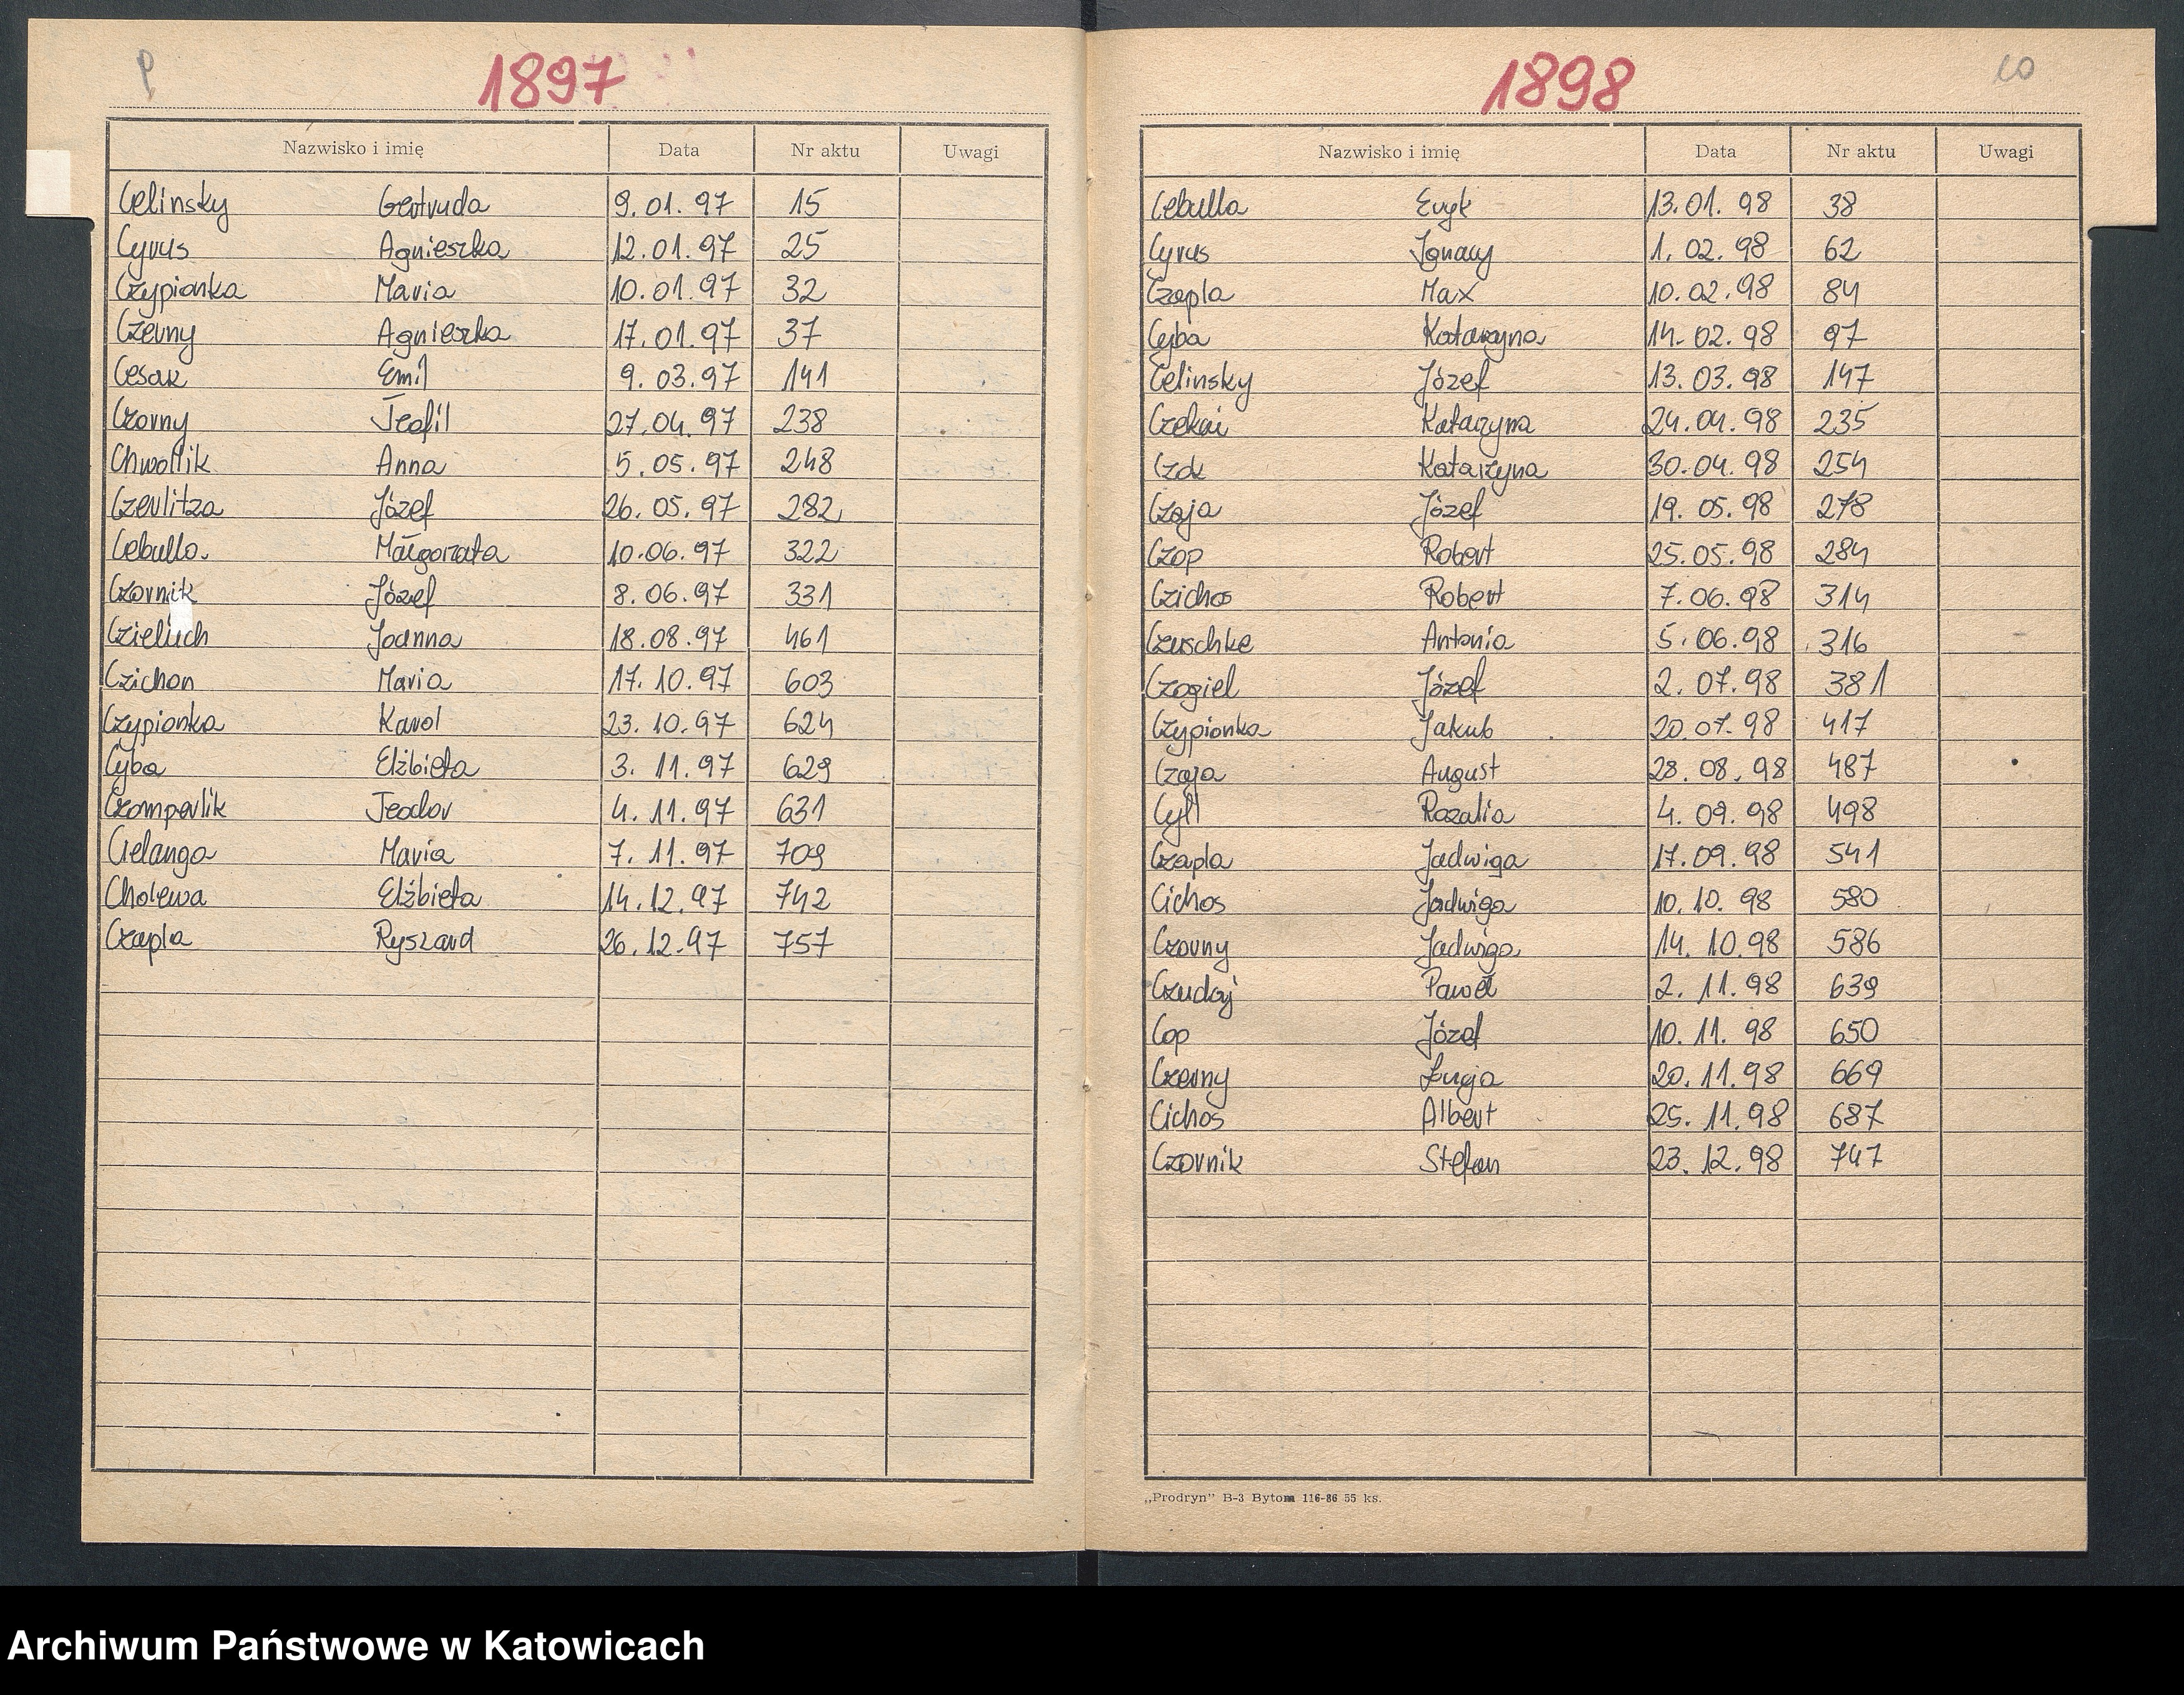 1897
Nazwisko i imię Data Nr aktu Uwagi
Celinsky Gertruda 9.01.97 15
Cyrus Agnieszka 12.01.97 25
Czypionka Maria 10.01.97 32
Czerny Agnieszka 17.01.97 37
Cesar Emil 9.03.97 141
Czorny Teofil 27.04.97 238
Chwollik Anna 5.05.97 248
Czerlitza Józef 26.05.97 282
Cebulla Małgorzata 10.06.97 322
Czornik Józef 8.06.97 331
Czieluch Joanna 18.08.97 461
Czichon Maria 17.10.97 603
Czypionka Karol 23.10.97 624
Cyba Elżbieta 3.11.97 629
Czomperlik Teodor 4.11.97 631
Cielanga Maria 7.11.97 709
Cholewa Elżbieta 14.12.97 742
Czapla Ryszard 26.12.97 757
1898
10
Nazwisko i imię Data Nr aktu Uwagi
Cebulla Eryk 13.01.98 38
Cyrus Ignacy 1.02.98 62
Czapla Max 10.02.98 84
Cyba Katarzyna 14.02.98 97
Celinsky Józef 13.03.98 147
Czekai Katarzyna 24.04.98 235
Katarzyna 30.04.98 254
Czaja Józef 19.05.98 278
Czop Robert 25.05.98 284
Czichos Robert 7.06.98 314
Czuschke Antonia 5.06.98 316
Czogiel Józef 2.07.98 381
Czypionka Jakub 20.07.98 417
Czaja August 28.08.98 487
Cyll Rozalia 4.09.98 498
Czapla Jadwiga 17.09.98 541
Cichos Jadwiga 10.10.98 580
Czorny Jadwiga 14.10.98 586
Czudaj Paweł 2.11.98 639
Cop Józef 10.11.98 650
Czerny Łucja 20.11.98 669
Cichos Albert 25.11.98 687
Czornik Stefan 23.12.98 747
„Prodryn” B-3 Bytom 116-86 55 ks.
Archiwum Państwowe w Katowicach